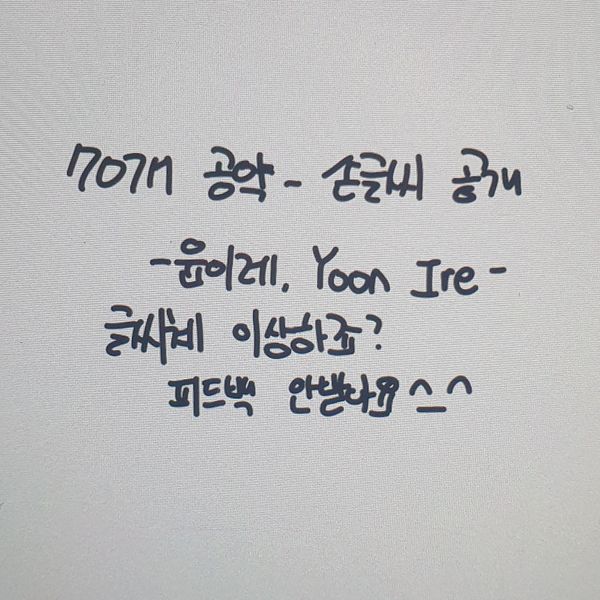 70개 공약 - 손글씨 공개
-윤이레. Yoon Ire-
글씨체 이상하죠?
피드백 안받아요^_^